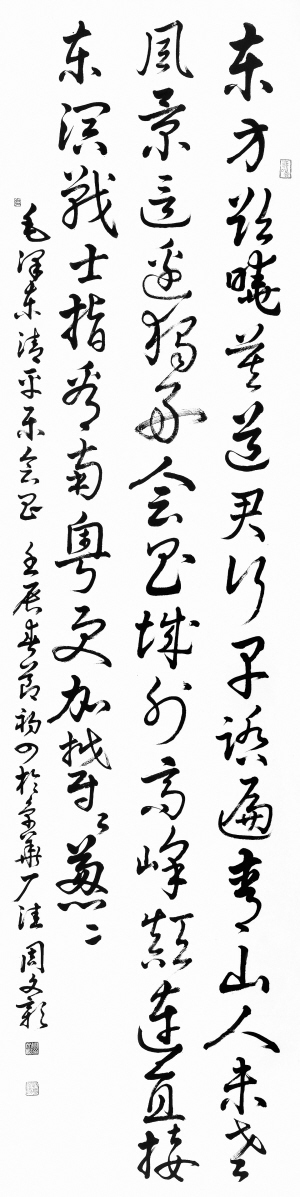 东方欲晓莫道君行早踏遍青山人未老
风景这边独好会昌城外高峰颠连直接
东溟战士指看南粤更加郁々葱々
毛泽东清平乐会昌 壬辰春节初四於京华厂洼 周文彰